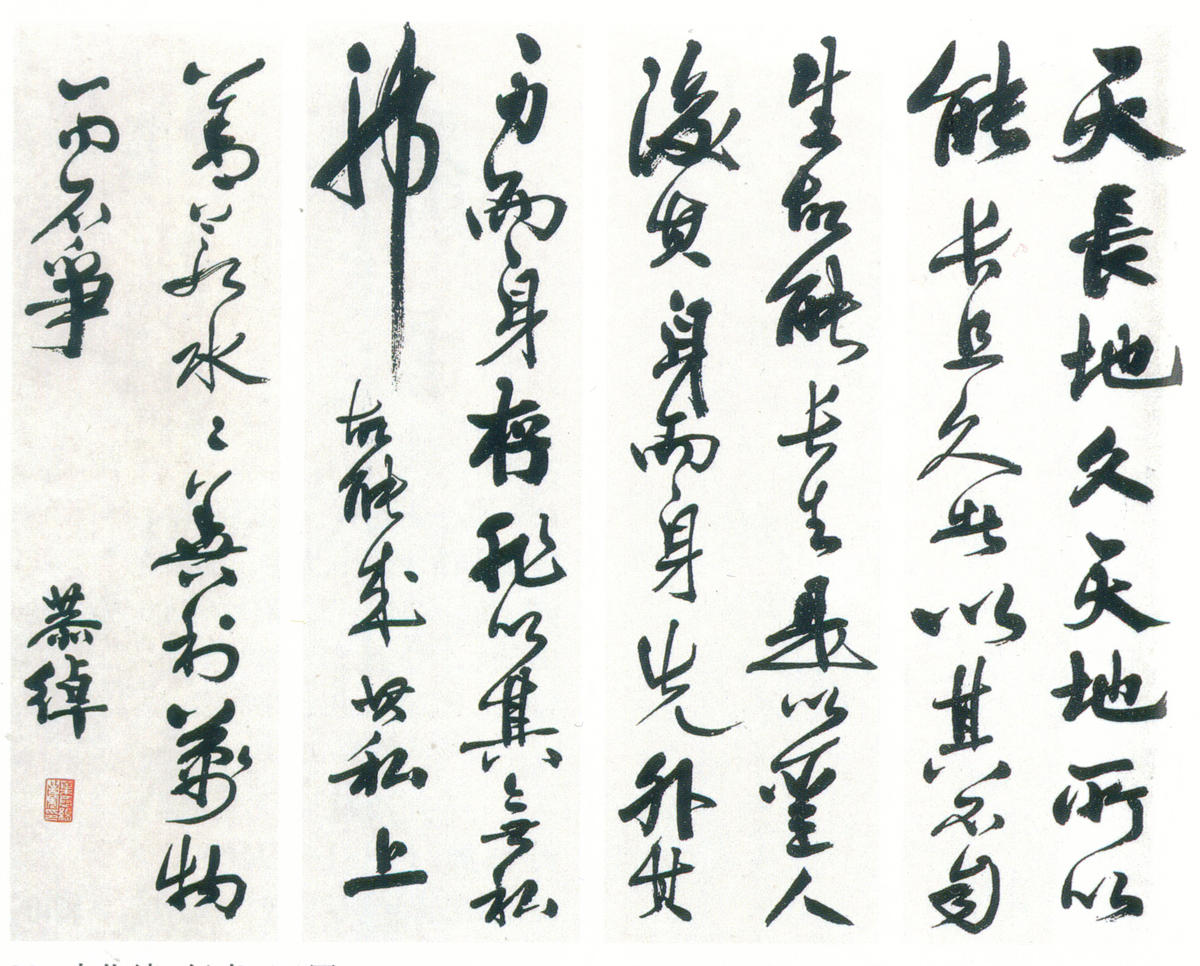 天長地久天地所以
能長且久者以其不自
生故能長生是以聖人
後其身而身先外其
身而身存非以其無私
邪故能成其私上
善若水〻善利萬物
而不爭